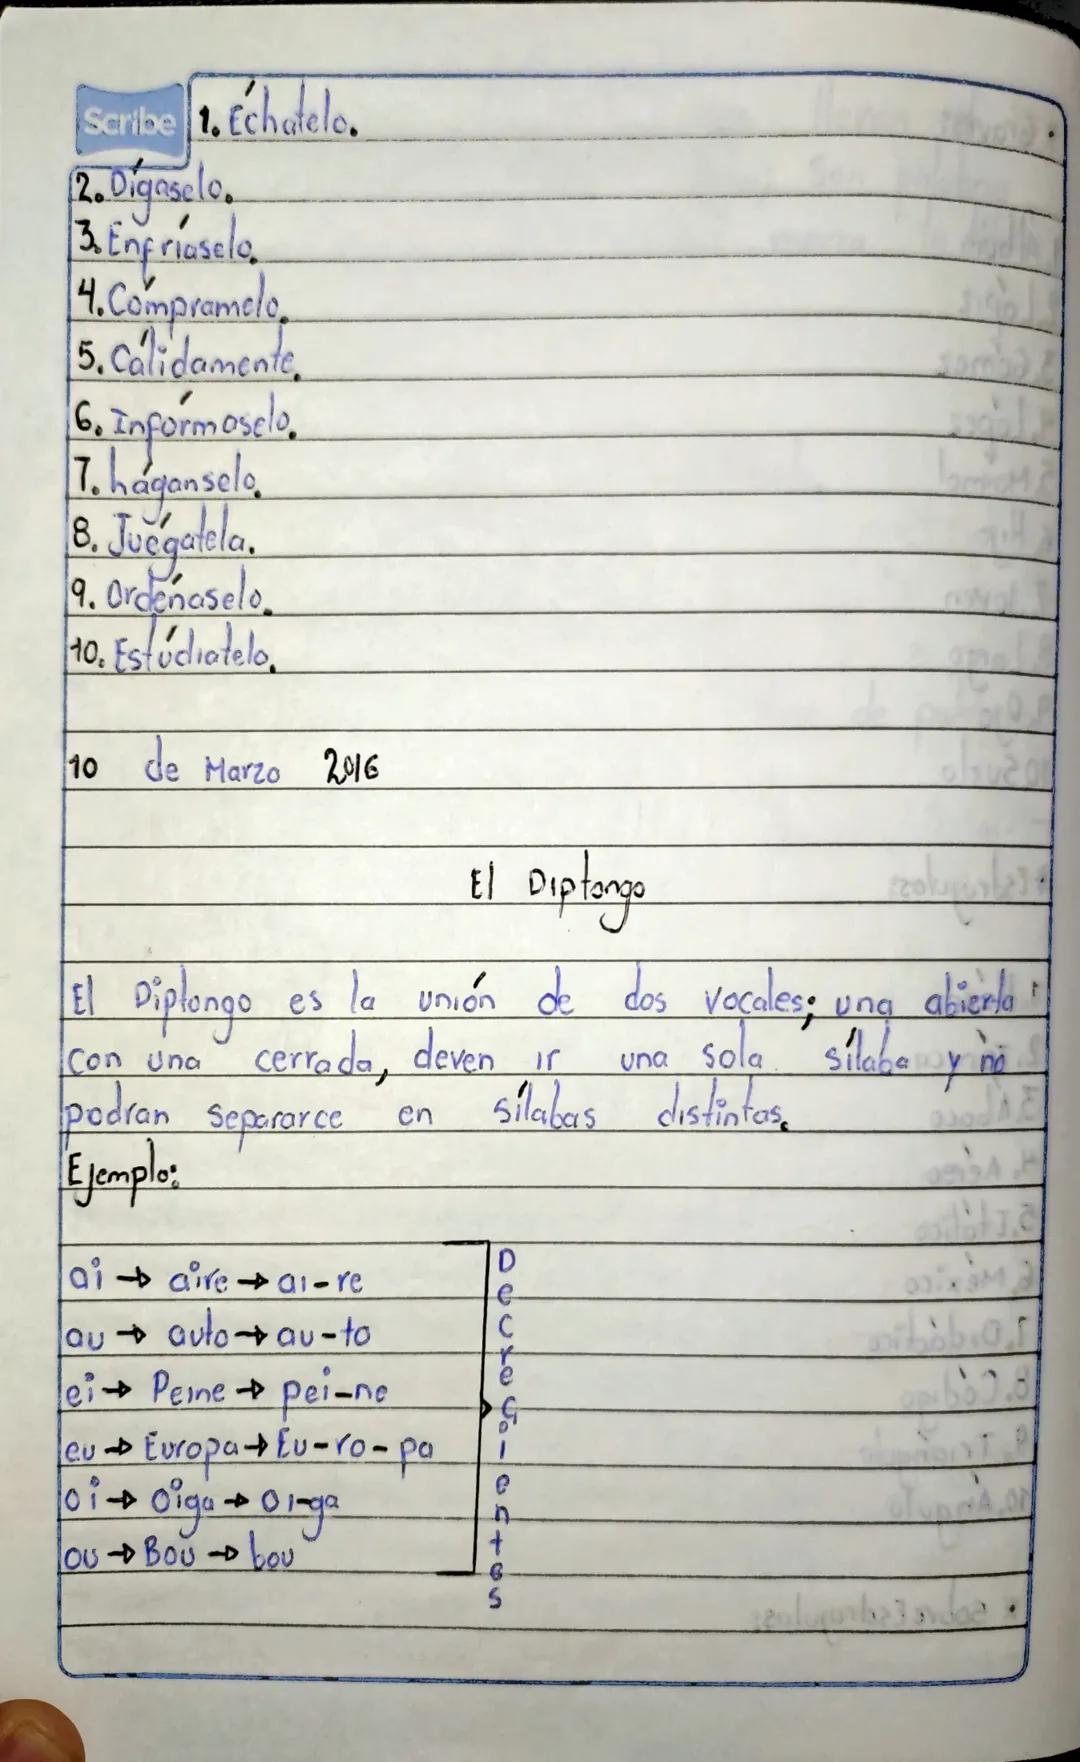 Scribe 1. Échatelo.
2. Dígaselo.
3. Enfríaselo.
4. Cómpramelo.
5. Cálidamente.
6. Infórmaselo.
7. háganselo.
8. Juégatela.
9. Ordéñaselo.
10. Estúdiatelo.
10 de Marzo 2016
El Diptongo
El Diptongo es la unión de dos vocales; una abierta
con una cerrada, deven ir una sola sílaba y no
podran separarce en sílabas distintas.
Ejemplo:
ai → aire → ai-re
au → auto → au-to
ei → Peine → pei-ne
eu → Europa → Eu-ro-pa
oi → oiga → oi-ga
ou → Bou → bou
Decrecientes